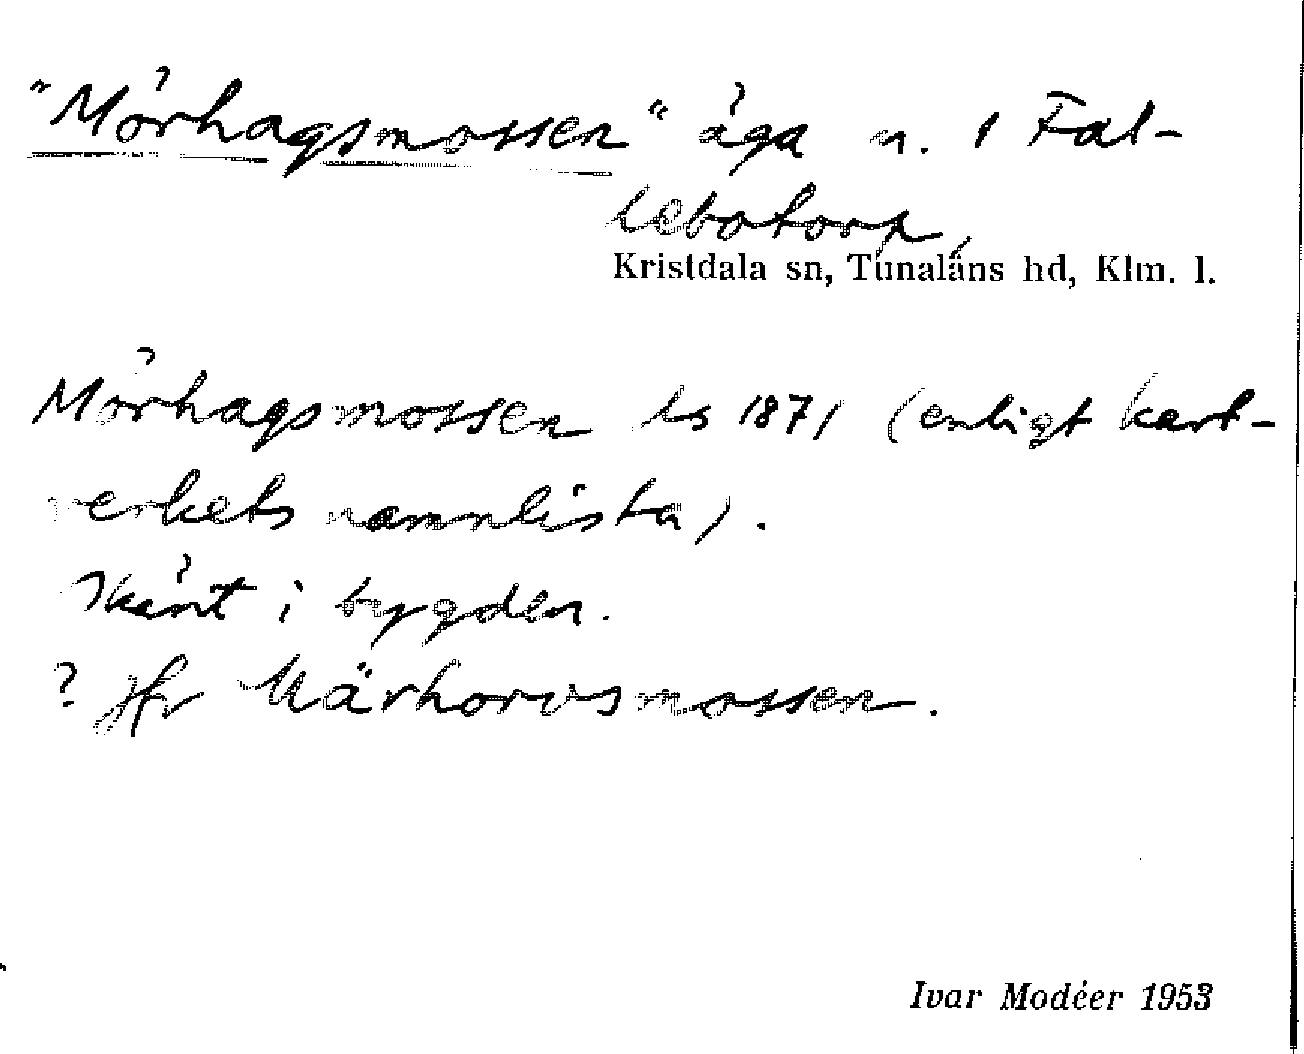 "Mörhagsmossen" äga u. 1 Fal-
lebotorp,
Kristdala sn, Tunaläns hd, Klm. l.
Mörhagsmossen ls 1871 (enligt kart-
verkets namnlista).
Okänt i bygden.
? Jfr Märhorvsmossen.
Ivar Modéer 1953